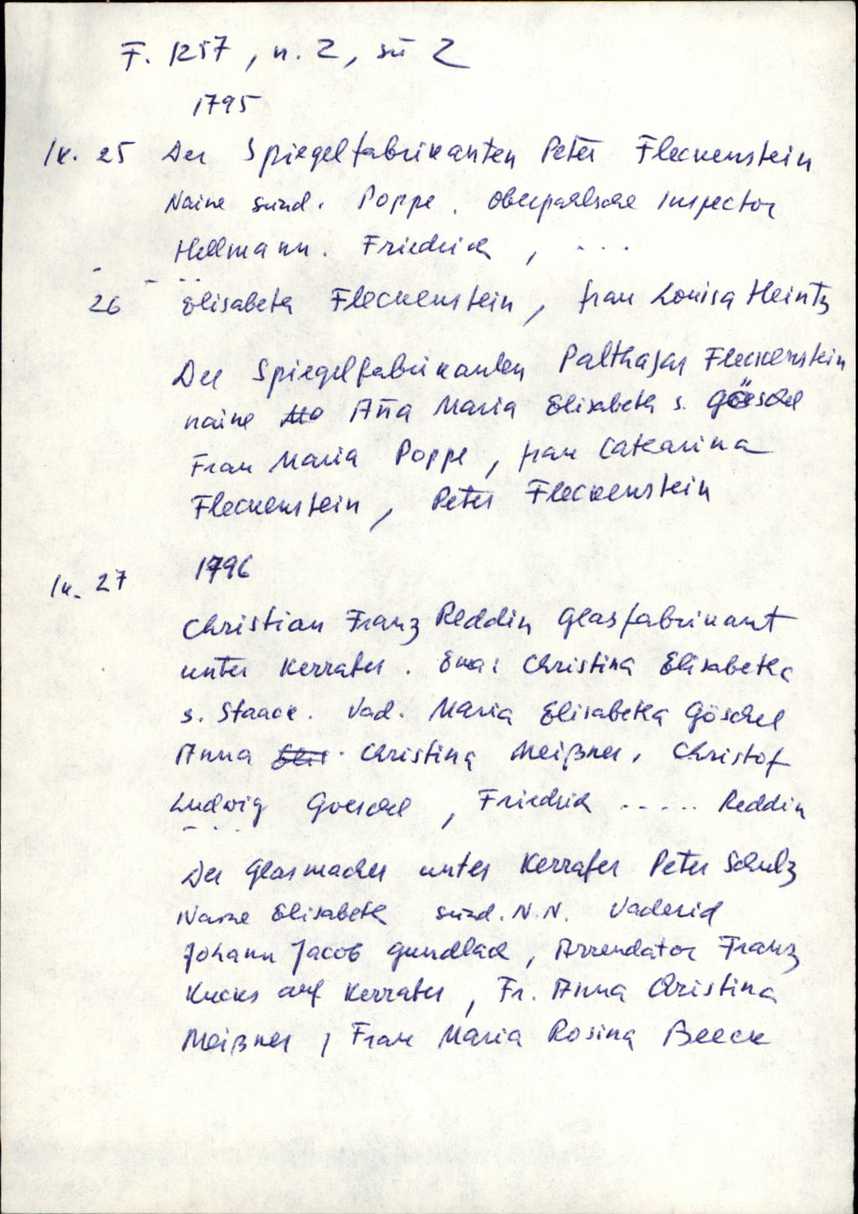 F. 1257, n. 2, sü 2
1795
lk. 25 Der Spiegelfabrikanten Peter Fleckenstein
Naine sünd. Poppe. Oberpahlsche Inspector
Hellmann. Friedrich, ...
26 Elisabeth Fleckenstein, frau Louisa Heintz
Der Spiegelfabrikanten Palthasar Fleckenstein
naine Aña Maria Elisabeth s. Göschel
Frau Maria Poppe, frau Catharina
Fleckenstein, Peter Fleckenstein
lk. 27 1796
Christian Franz Reddin Glasfabrikant
unter Kerrafer. Ema: Christina Elisabetha
s. Staack. Vad. Maria Elisabetha Göschel
Anna Christina Meißner, Christof
Ludwig Goeschel, Friedrich ..... Reddin
Der Glasmacher unter Kerrafer Peter Schulz
Naine Elisabeth sünd. N.N. Vaderid
Johann Jacob Gundlach, Arrendator Franz
Kucks auf Kerrafer, Fr. Anna Christina
Meißner, Frau Maria Rosina Beeck